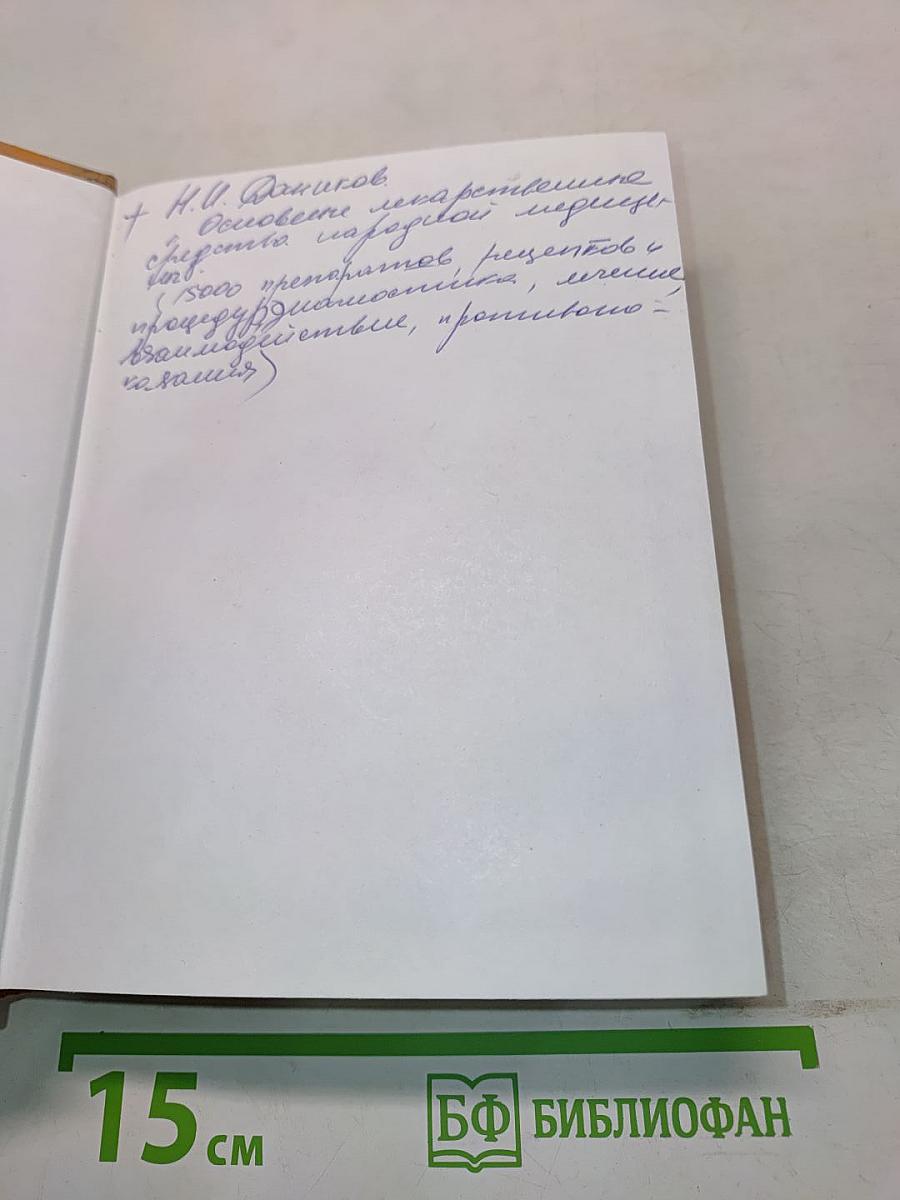 + Н.И. Даников
" Основные лекарственные
средства народной медици-
ны.
(15000 препаратов, рецептов и
процедур, диагностика, лечение,
взаимодействие, противопо-
казания)
15 см
БФ БИБЛИОФАН